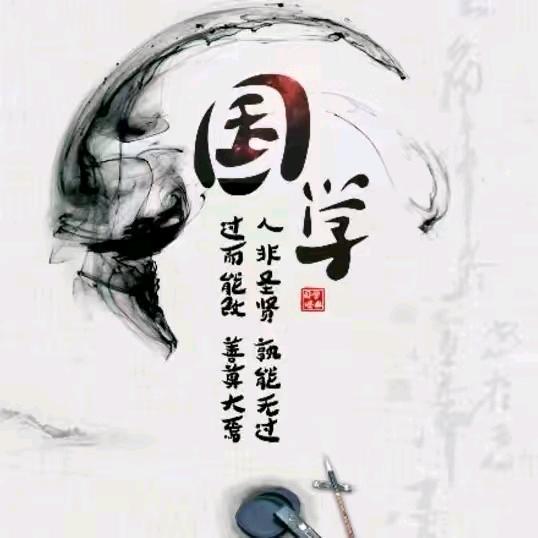 国学
人非圣贤 孰能无过
过而能改 善莫大焉